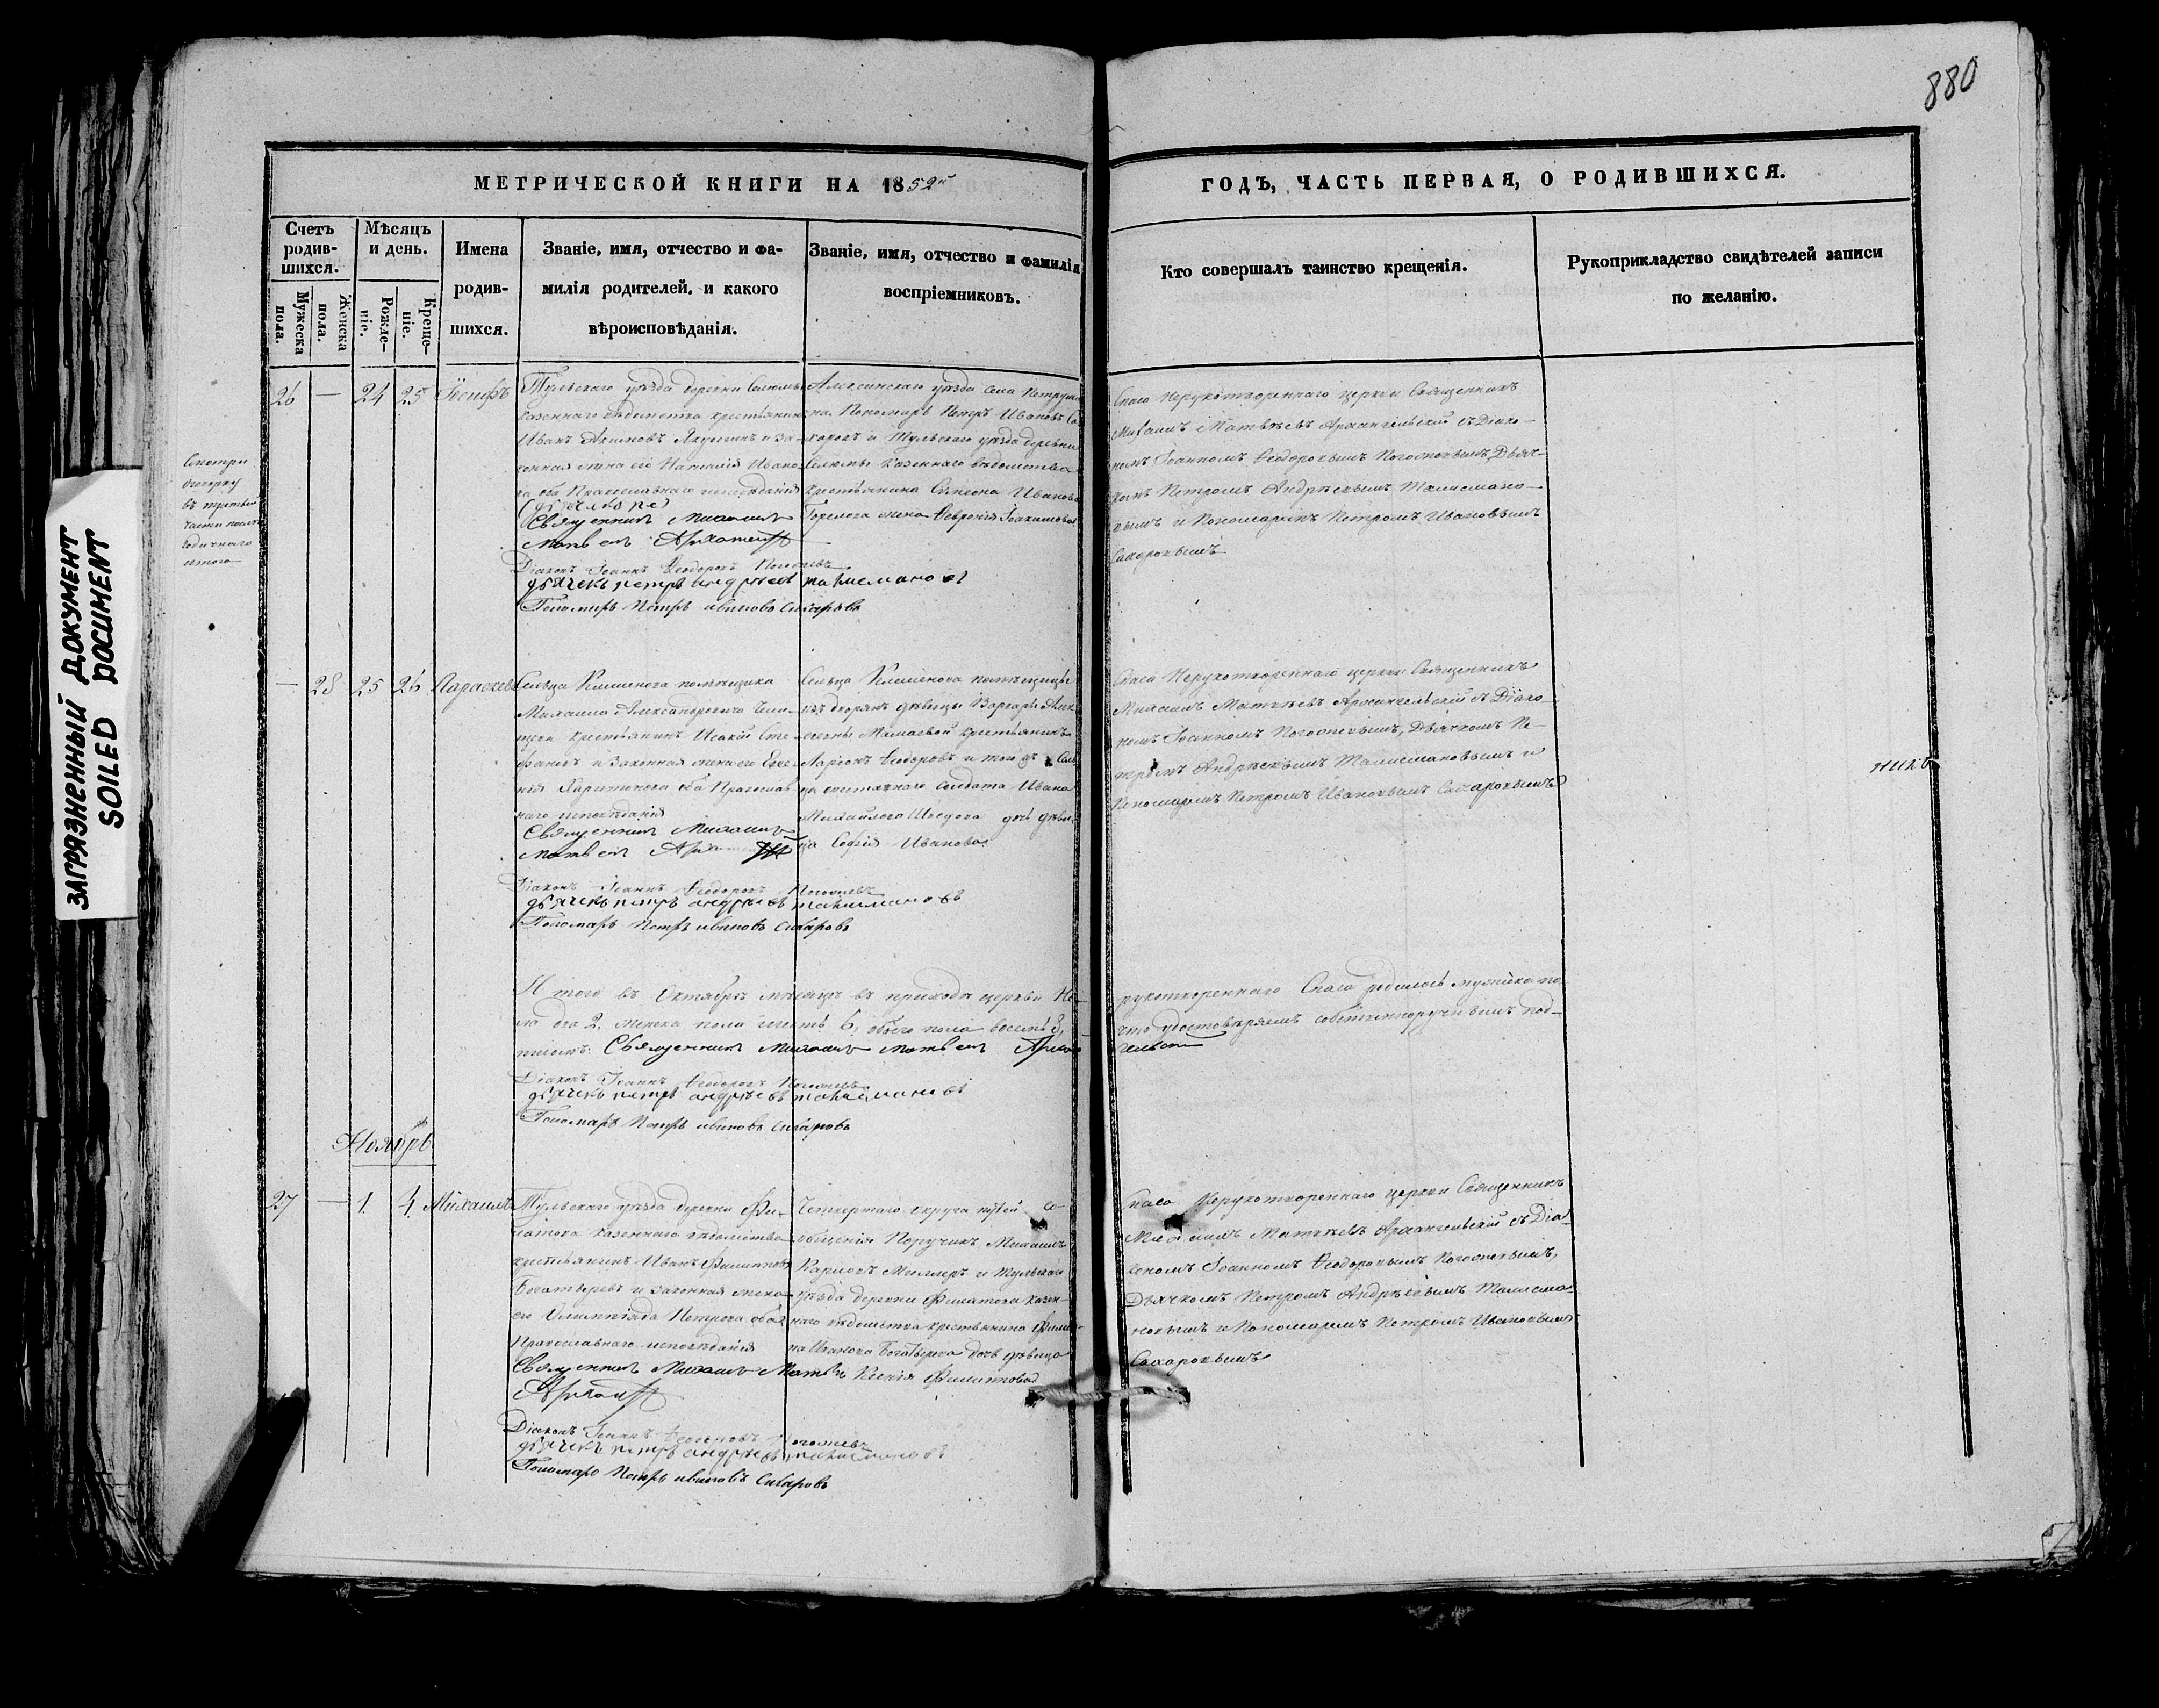 880
МЕТРИЧЕСКОЙ КНИГИ НА 1852й
ГОДЪ, ЧАСТЬ ПЕРВАЯ, О РОДИВШИХСЯ.
Счетъ родив-
шихся.
Мужеска пола.
Женска пола.
Мѣсяцъ
и день.
Рожде-
ніе.
Креще-
ніе.
Имена
родив-
шихся.
Званіе, имя, отчество и фа-
милія родителей, и какого
вѣроисповѣданія.
Званіе, имя, отчество и фамилія
воспріемниковъ.
Кто совершалъ таинство крещенія.
Рукоприкладство свидѣтелей записи
по желанію.
ЗАГРЯЗНЕННЫЙ ДОКУМЕНТ
SOILED DOCUMENT
Смотри
оговорку
въ третьей
части
годичнаго
итога
26 — 24 25 Іосифъ
Тульскаго уѣзда деревни
казеннаго вѣдомства крестьянинъ
Иванъ Акимовъ и за-
конная жена его Наталія Ивано-
ва оба Православнаго исповѣданія
Священникъ Михаилъ
Матвеевъ
Діаконъ Іоаннъ Ѳеодоровъ
дьячекъ петръ андреевъ талисмановъ
Пономарь Петръ ивановъ Сахаровъ
Алексинскаго уѣзда села
Пономарь Петръ Ивановъ Са-
харовъ и Тульскаго уѣзда деревни
казеннаго вѣдомства
крестьянина Симеона Иванова
жена Ѳеврония
Спаса Нерукотвореннаго церкви Священникъ
Михаилъ Матвѣевъ Архангельскій съ Діако-
номъ Іоанномъ Ѳеодоровымъ Дьяч-
комъ Петромъ Андрѣевымъ Талисмано-
вымъ и Пономаремъ Петромъ Ивановымъ
Сахаровымъ
— 28 25 26 Параскева
Сельца Клишенова помѣщика
Михаила Александровича
крестьянинъ Исакій Сте-
фановъ и законная жена его Евге-
нія Харитонова оба Православ-
наго исповѣданія
Священникъ Михаилъ
Матвеевъ
Діаконъ Іоаннъ Ѳеодоровъ
дьячекъ петръ андреевъ талисмановъ
Пономарь Петръ ивановъ Сахаровъ
Сельца Клишенова помѣщицы
изъ дворянъ дѣвицы Варвары Алек-
сеевны крестьянинъ
Ларіонъ Ѳеодоровъ и
солдата Ивана
Михайлова Шведова дочь дѣви-
ца Софія Иванова
Спаса Нерукотвореннаго церкви Священникъ
Михаилъ Матвѣевъ Архангельскій съ Діако-
номъ Іоанномъ Дьячкомъ Пе-
тромъ Андрѣевымъ Талисмановымъ и
Пономаремъ Петромъ Ивановымъ Сахаровымъ
И того въ Октябрѣ мѣсяцѣ въ приходѣ церкви Не-
рукотвореннаго Спаса родилось мужеска по-
ла два 2, женска пола шесть 6, обоего пола восемь 8,
что удостовѣряемъ собственноручнымъ под-
писомъ: Священникъ Михаилъ Матвеевъ
Діаконъ Іоаннъ Ѳеодоровъ
дьячекъ петръ андреевъ талисмановъ
Пономарь Петръ ивановъ Сахаровъ
Ноябрь
27 — 1 4 Михаилъ
Тульскаго уѣзда деревни Фи-
латова казеннаго вѣдомства
крестьянинъ Иванъ Филипповъ
Богатыревъ и законная жена
его Олимпіада Петрова оба
Православнаго исповѣданія
Священникъ Михаилъ Матвеевъ
Діаконъ Іоаннъ Ѳеодоровъ
дьячекъ петръ андреевъ талисмановъ
Пономарь Петръ ивановъ Сахаровъ
Четвертаго округа путей со-
общенія Поручикъ Михаилъ
Карловъ Миллеръ и Тульскаго
уѣзда деревни Филатова казен-
наго вѣдомства крестьянина Филип-
па Иванова Богатырева дочь дѣвица
Ксенія Филиппова
Спаса Нерукотвореннаго церкви Священникъ
Михаилъ Матвѣевъ Архангельскій съ Діа-
кономъ Іоанномъ Ѳеодоровымъ
Дьячкомъ Петромъ Андрѣевымъ Талисма-
новымъ и Пономаремъ Петромъ Ивановымъ
Сахаровымъ